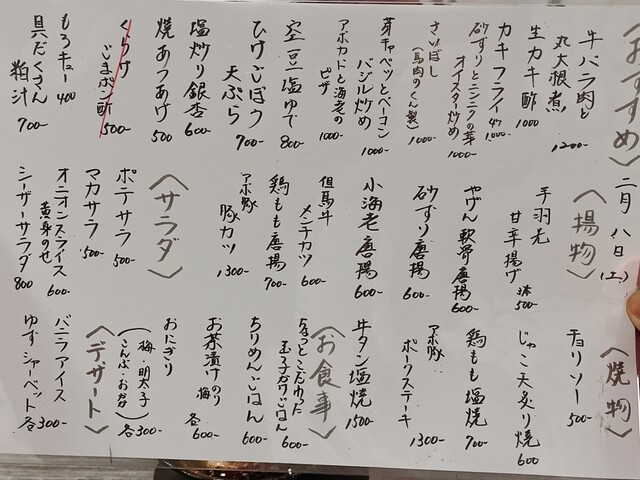 〈おすすめ〉 二月八日(土)
牛バラ肉と
丸大根煮 1200-
生カキ酢 1000
カキフライ 4ケ 1,000-
砂ずりとニンニクの芽
オイスター炒め 1000-
さいぼし
(馬肉のくん製) 1000-
芽キャベツとベーコン
バジル炒め 1000-
アボカドと海老の
ピザ 1000-
空豆塩ゆで 800-
ひげごぼう
天ぷら 700-
塩炒り銀杏 600-
焼あつあげ 500
くらげ
ごまポン酢 500-
もろキュー 400
具だくさん
粕汁 700-
〈揚物〉
手羽先
甘辛揚げ 3本 500-
やげん軟骨唐揚 600-
砂ずり唐揚 600-
小海老唐揚 600-
但馬牛
メンチカツ 600-
鶏もも唐揚 700-
アボ豚
豚カツ 1300-
〈サラダ〉
ポテサラ 500-
マカサラ 500-
オニオンスライス
黄身のせ 600-
シーザーサラダ 800
〈焼物〉
チョリソー 500-
じゃこ天炙り焼 600
鶏もも塩焼 700-
アボ豚
ポークステーキ 1300-
牛タン塩焼 1500-
〈お食事〉
ちょっとこだわった
玉子かけごはん 600-
ちりめんごはん 600-
お茶漬け のり 梅 各600-
おにぎり
(梅・明太子
こんぶ・おかか) 各300-
〈デザート〉
バニラアイス
ゆずシャーベット 各300-